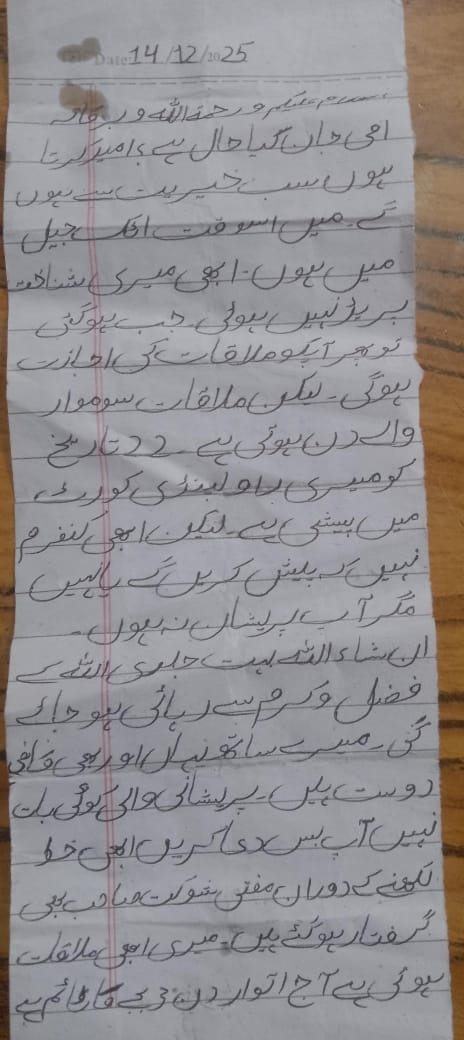 Date: 14/12/2025
السلام علیکم ورحمۃ اللہ و برکاتہ
امی جان کیا حال ہے، امید کرتا
ہوں سب خیریت سے ہوں
گے۔ میں اسوقت اٹک جیل
میں ہوں۔ ابھی میری شناخت
پریڈ نہیں ہوئی۔ جب ہوگئی
تو پھر آپکو ملاقات کی اجازت
ہوگی۔ لیکن ملاقات سوموار
والے دن ہوتی ہے۔ 22 تاریخ
کو میری راولپنڈی کورٹ
میں پیشی ہے۔ لیکن ابھی کنفرم
نہیں کہ پیش کریں گے یا نہیں
مگر آپ پریشان نہ ہوں۔
ان شاء اللہ بہت جلدی اللہ کے
فضل و کرم سے رہائی ہو جائے
گی۔ میرے ساتھ یہاں اور بھی کافی
دوست ہیں۔ پریشانی والی کوئی بات
نہیں آپ بس دعا کریں ابھی خط
لکھنے کے دوران مفتی شوکت صاحب بھی
گرفتار ہو گئے ہیں۔ میری ابھی ملاقات
ہوئی ہے آج اتوار دن 3 بجے کا ٹائم ہے